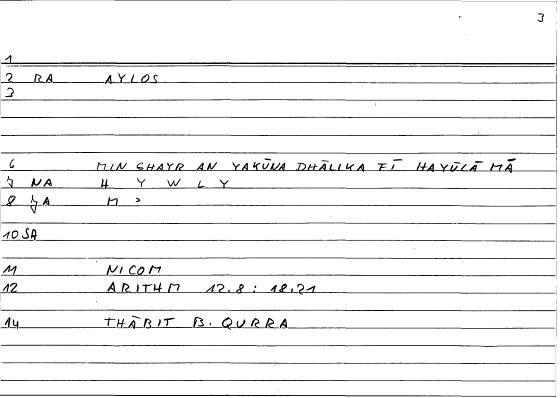 3
1
2 RA AYLOS
3
6 MIN GHAYR AN YAKŪNA DHĀLIKA FĪ HAYŪLĀ MĀ
7 NA H Y W L Y
8 7A M >
10 SA
11 NICOM
12 ARITHM 12.8 : 18.21
14 THĀBIT B. QURRA